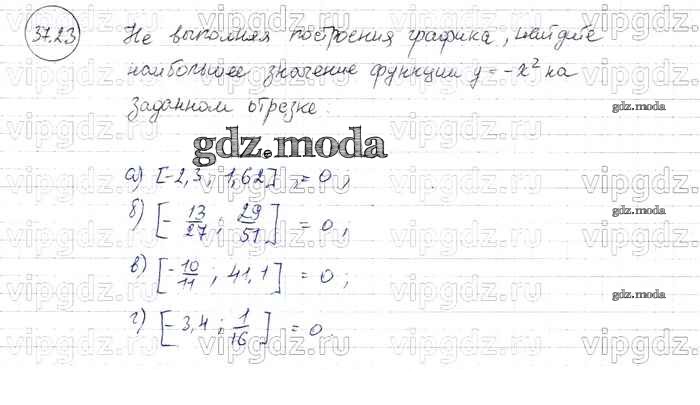 37.23 Не выполняя построения графика, найдите
наибольшее значение функции y = -x² на
заданном отрезке:
gdz.moda
gdz.moda
а) [-2,3 ; 1,62] = 0 ;
б) [-13/27 ; 29/51] = 0 ;
gdz.moda
в) [-10/11 ; 41,1] = 0 ;
gdz.moda
г) [-3,4 ; 1/16] = 0
vipgdz.ru